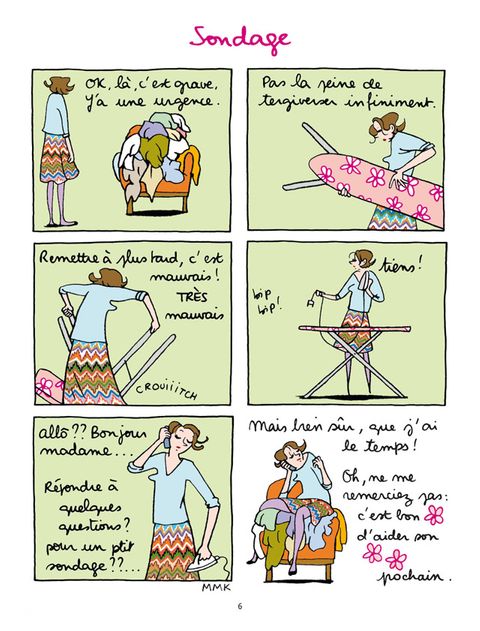 Sondage
OK, là, c'est grave,
Y'a une urgence.
Pas la peine de
tergiverser infiniment.
Remettre à plus tard, c'est
mauvais!
TRÈS
mauvais
CROUIIITCH
bip
bip!
tiens!
allô?? Bonjour
madame...
Répondre à
quelques
questions?
pour un ptit
sondage??...
MMK
Mais bien sûr, que j'ai
le temps!
Oh, ne me
remerciez pas:
c'est bon
d'aider son
pochain.
6